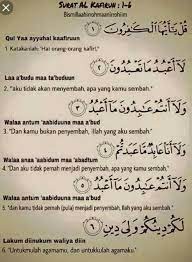 SURAT AL KAFIRUN : 1-6
Bismillaahirrohmaanirrohiim
قُلْ يَا أَيُّهَا الْكَافِرُونَ ١
Qul Yaa ayyuhal kaafiruun
1. Katakanlah: "Hai orang-orang kafir!,
لَا أَعْبُدُ مَا تَعْبُدُونَ ٢
Laa a'budu maa ta'buduun
2. "aku tidak akan menyembah, apa yang kamu sembah."
وَلَا أَنْتُمْ عَابِدُونَ مَا أَعْبُدُ ٣
Walaa antum 'aabduuna maa a'bud
3. "Dan kamu bukan penyembah, Ilah yang aku sembah."
وَلَا أَنَا عَابِدٌ مَا عَبَدْتُمْ ٤
Walaa anaa 'aabidum maa 'abadtum
4. "dan Aku tidak pernah menjadi penyembah, apa yang kamu sembah."
وَلَا أَنْتُمْ عَابِدُونَ مَا أَعْبُدُ ٥
Walaa antum 'aabiduuna maa a'bud
5. "dan kamu tidak pernah (pula) menjadi penyembah, Ilah yang aku sembah."
لَكُمْ دِينُكُمْ وَلِيَ دِينِ ٦
Lakum diinukum waliya diin
6. "Untukmulah agamamu, dan untukkulah agamaku."